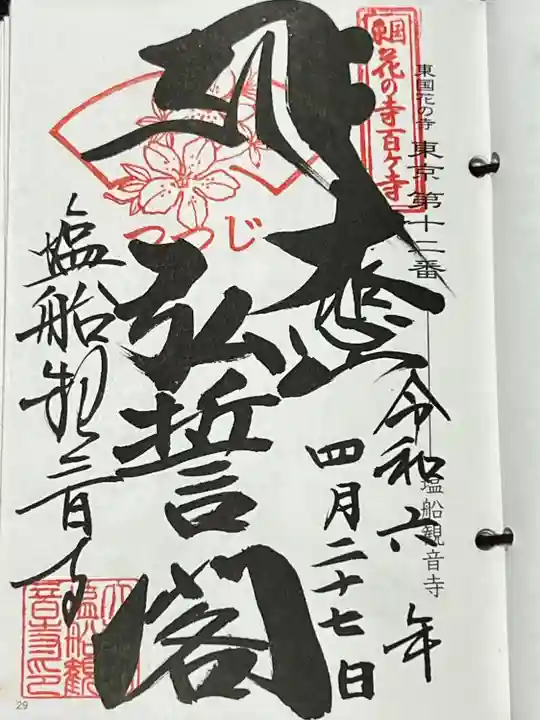 東国花の寺百ヶ寺
東国花の寺 東京 第十二番
塩船観音寺
奉拝
令和六年
四月二十七日
弘誓閣
つつじ
塩船観音寺
29